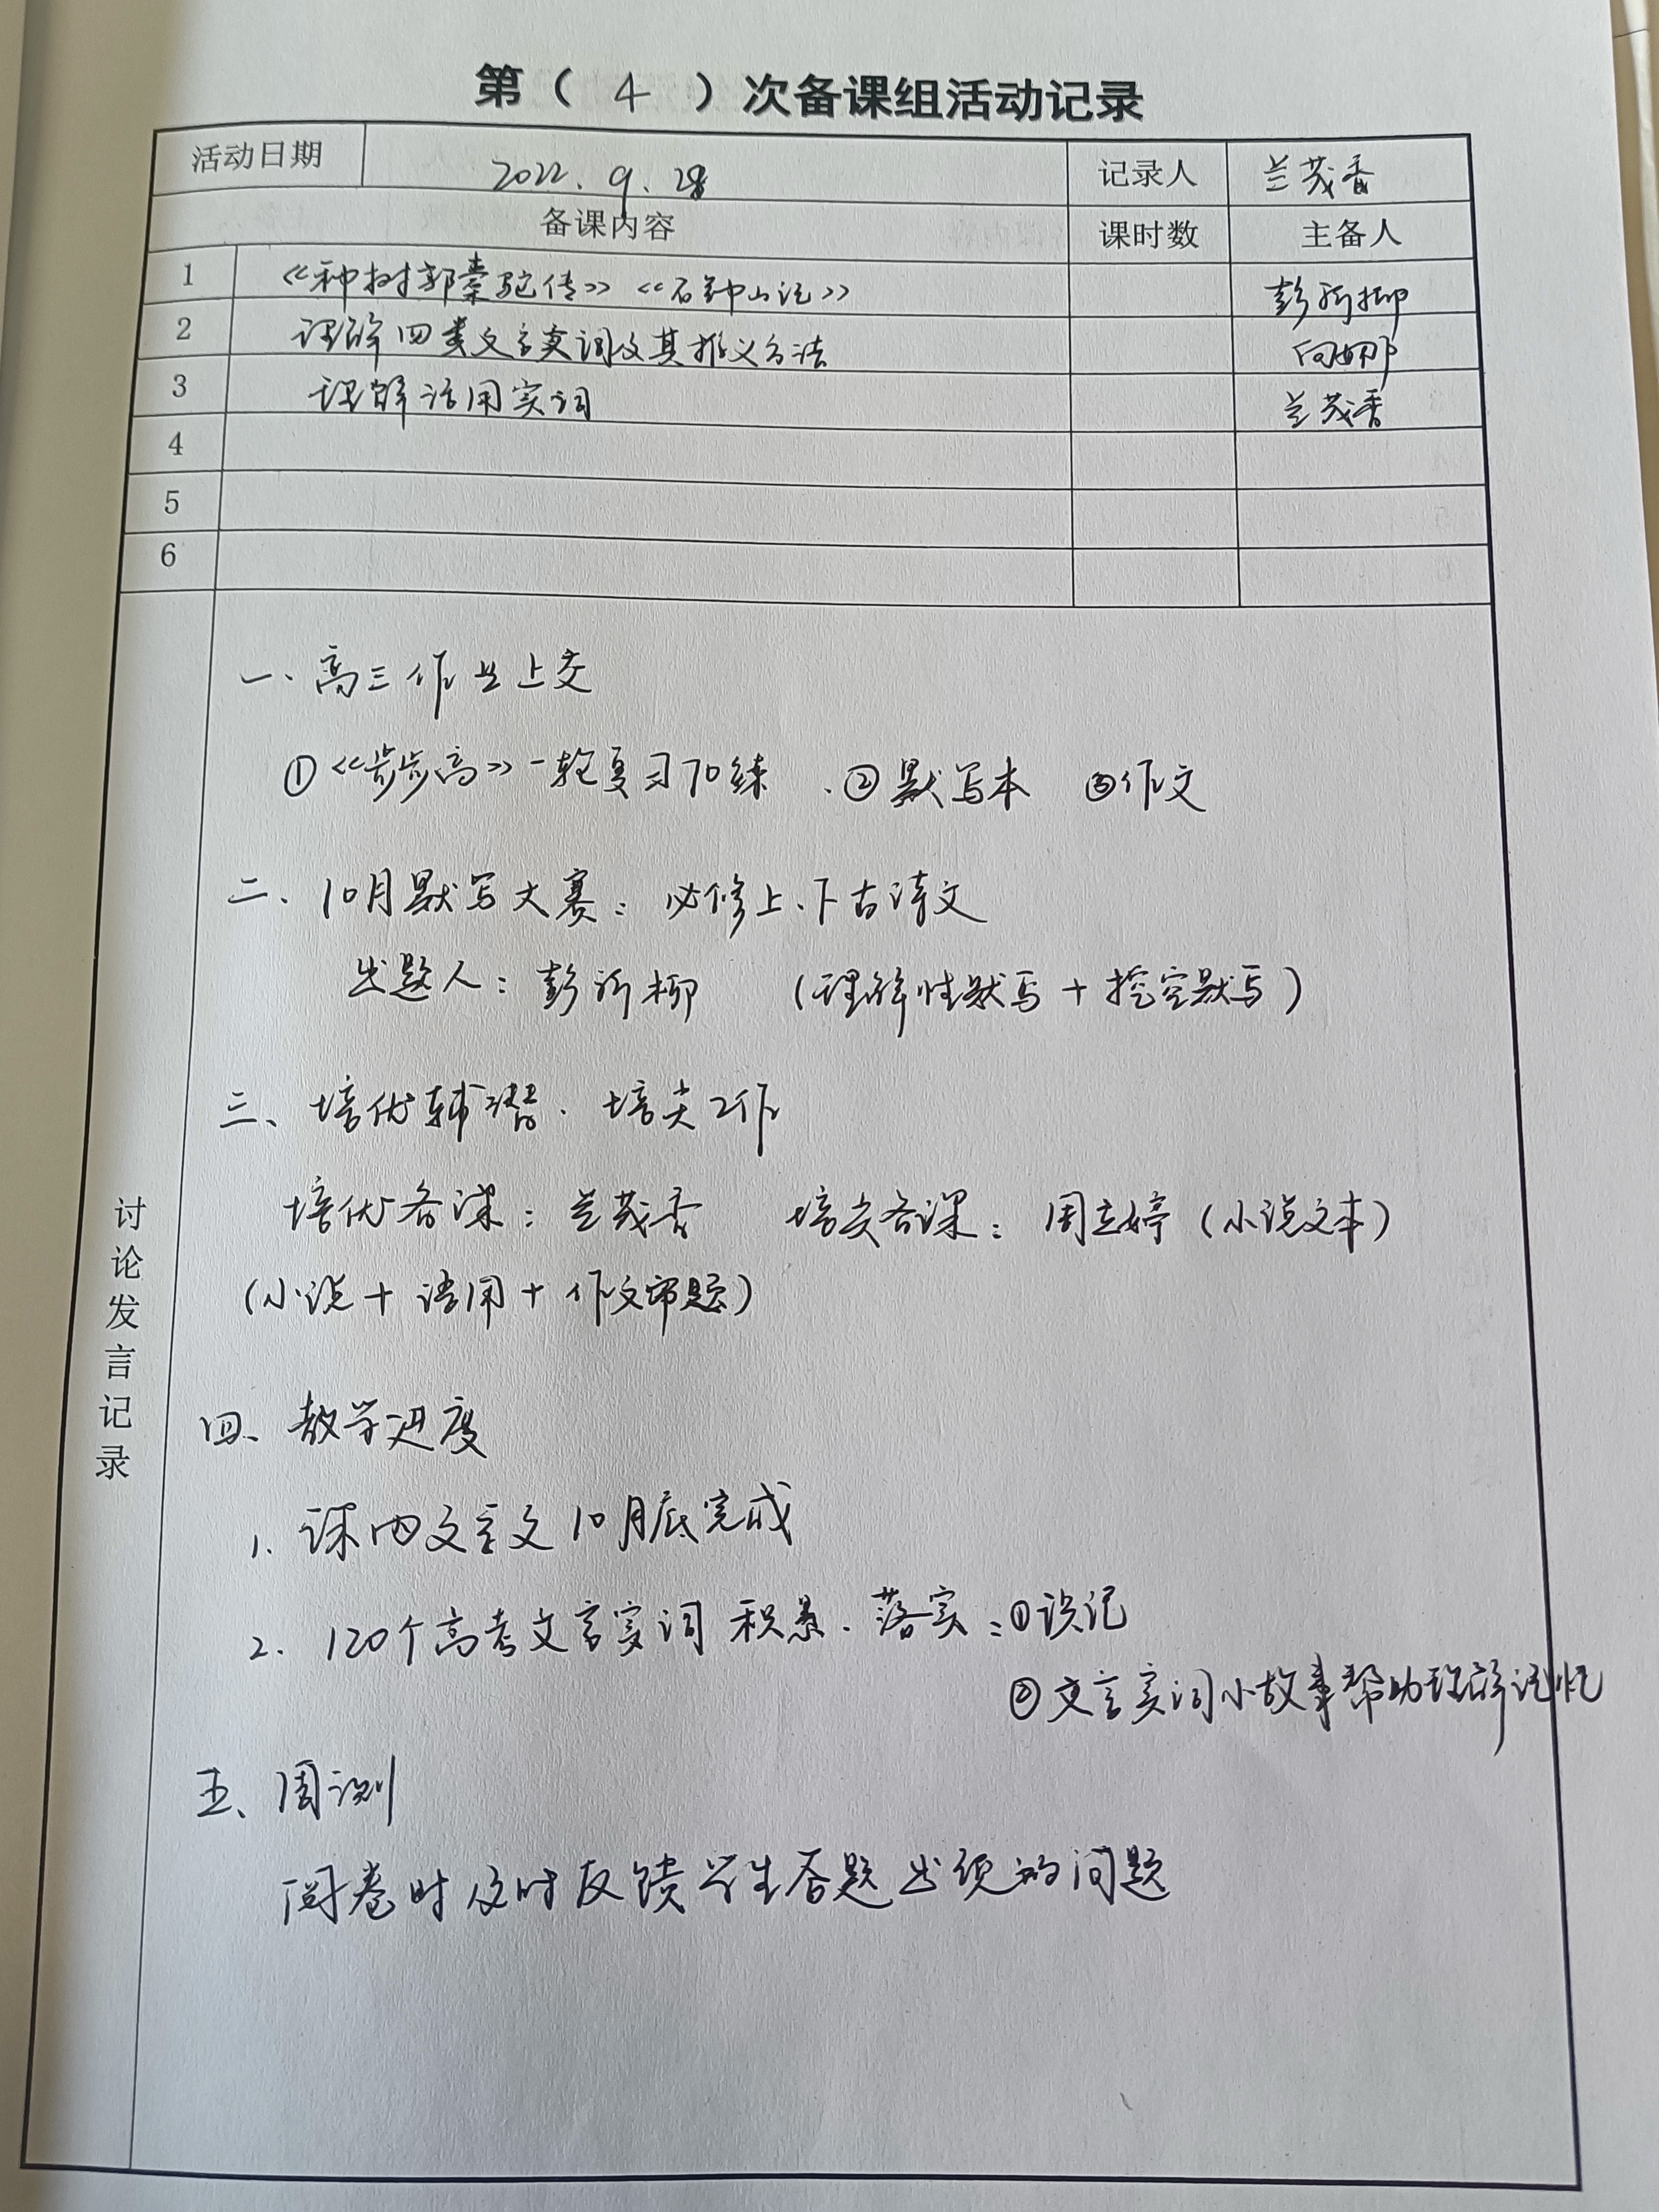 第（ 4 ）次备课组活动记录
活动日期 2022.9.28 记录人 兰茂香
备课内容 课时数 主备人
1 《种树郭橐驼传》《石钟山记》 彭沂柳
2 理解四类文言实词及其推义方法 向娜
3 理解活用实词 兰茂香
4
5
6
讨论发言记录
一、高三作业上交
①《步步高》一轮复习70练 、②默写本 ③作文
二、10月默写大赛：必修上、下古诗文
出题人：彭沂柳 （理解性默写＋挖空默写）
三、培优辅潜、培尖工作
培优备课：兰茂香 培尖备课：周立婷（小说文本）
（小说＋语用＋作文审题）
四、教学进度
1. 课内文言文10月底完成
2. 120个高考文言实词积累、落实：①识记
②文言实词小故事帮助理解记忆
五、周测
阅卷时及时反馈学生答题出现的问题